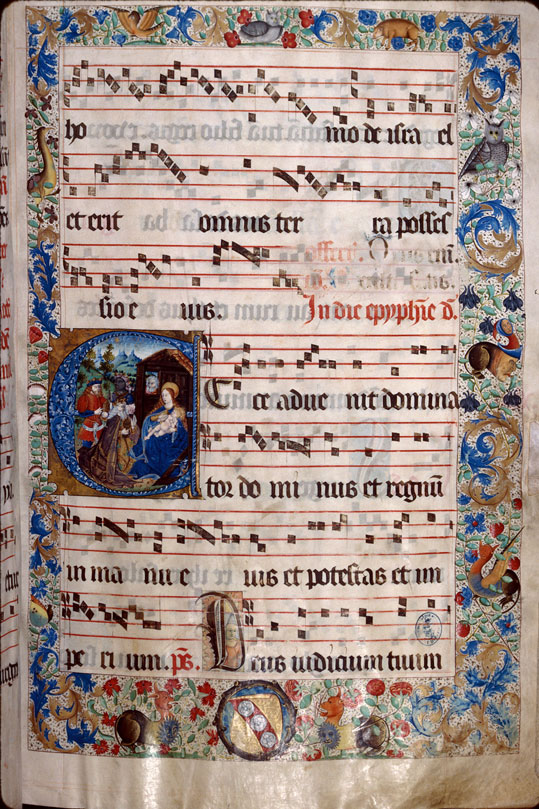 ho mo de isra el
et erit domnius ter ra posses
sio e ius. In die epyphie d.
Ecce adue nit domina
tor do mi nus et regnū
in ma nu e ius et potestas et im
pe ri um. ps. Deus iudicium tuum